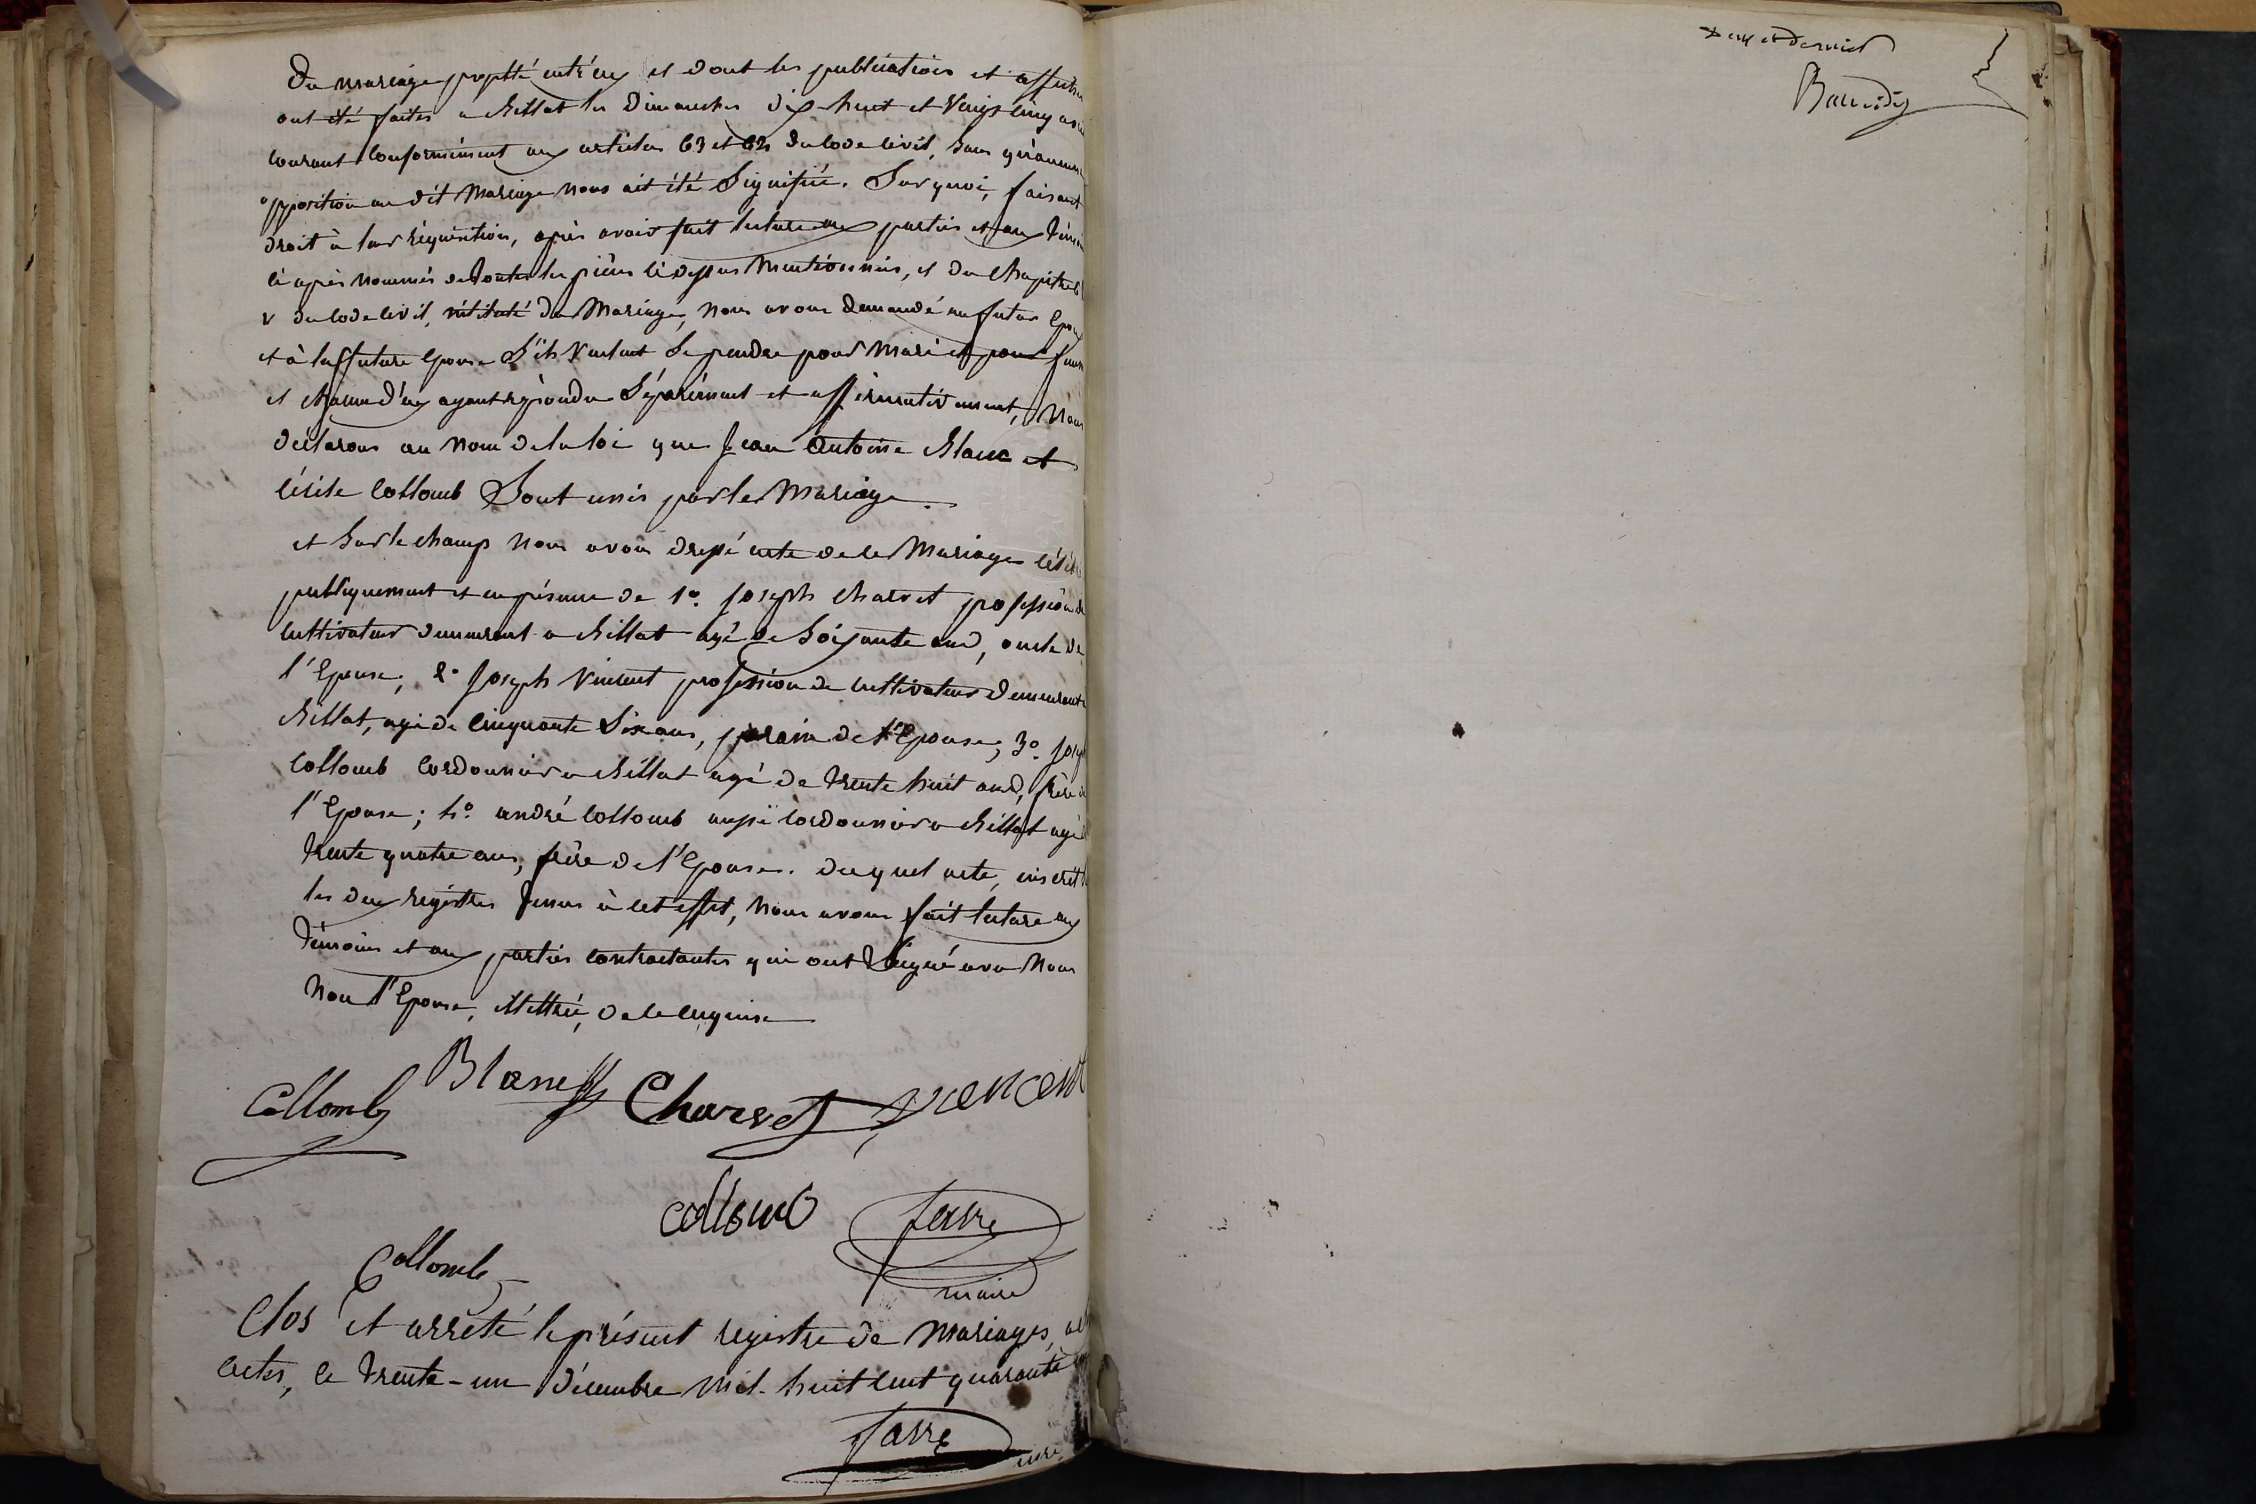 du mariage projetté entr'eux et dont les publications et affiches
ont été faites a Chillat les dimanches dix-huit et vingt cinq avril
courant conformément aux articles 63 et 64 du Code Civil, sans qu'aucune
opposition au dit mariage nous ait été signifiée. Sur quoi, faisant
droit à leur réquisition, après avoir fait lecture aux parties et aux témoins
ci après nommés de toutes les pièces ci dessus mentionnées, et du chapitre
V du Code Civil, intitulé du Mariage, nous avons demandé au futur Epoux
et à la future Epouse s'ils veulent se prendre pour mari et pour femme
et chacun d'eux ayant répondu séparément et affirmativement, Nous
déclarons au nom de la loi que Jean Antoine Blanc et
Cécile Collomb sont unis par le Mariage.
et sur le champ nous avons dressé acte de ce Mariage célébré
publiquement et en présence de 1° Joseph Charvet profession de
cultivateur demeurant a Chillat agé de soixante ans, oncle de
l'Epouse; 2° Joseph Vincent profession de cultivateur demeurant a
Chillat, agé de cinquante six ans, parain de l'Epouse; 3° Joseph
Collomb cordonnier a Chillat agé de trente huit ans, frère de
l'Epouse; 4° andré Collomb aussi cordonnier a Chillat agé de
trente quatre ans, frère de l'Epouse. duquel acte, inscrit
les deux registres tenus à cet effet, nous avons fait lecture aux
témoins et aux parties contractantes qui ont signé avec nous
non l'Epouse, illettrée, de ce enquise
Collomb Blanc Charvet Vincent
Collomb Favre
maire
Collomb
Clos et arrêté le présent registre de Mariages,
actes, le trente-un décembre mil-huit cent quarante
Favre
maire
deux et dernier